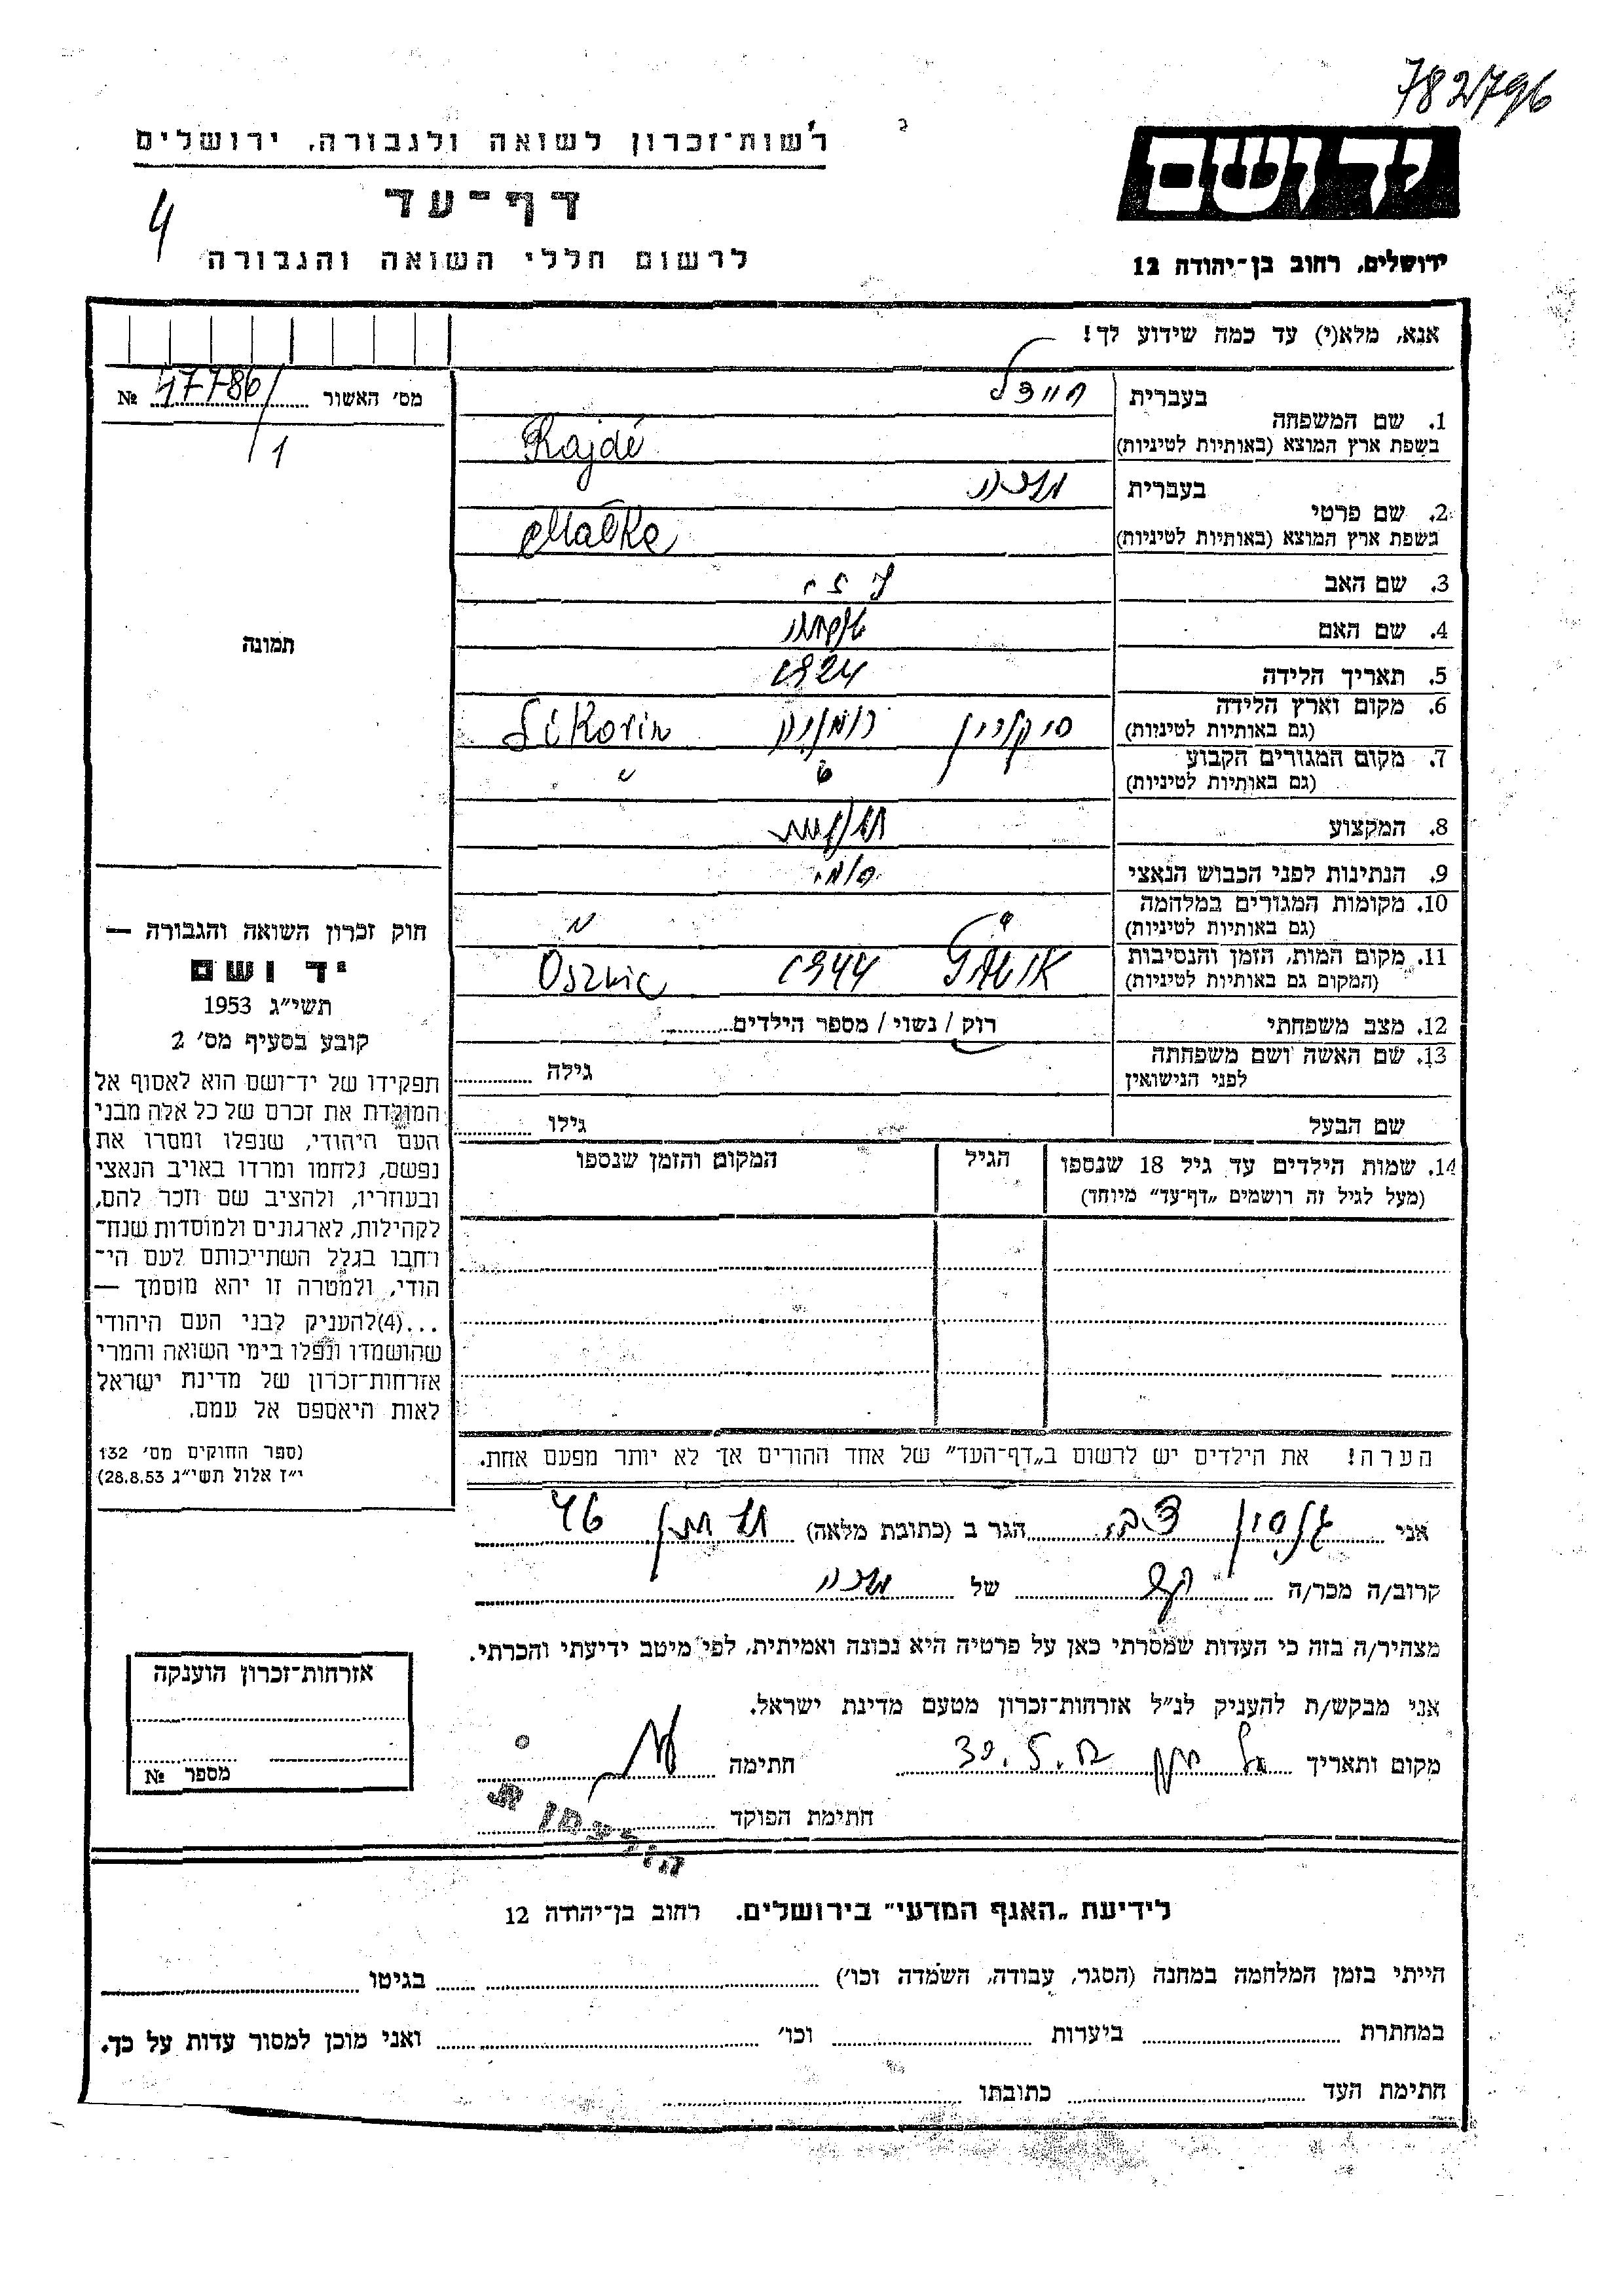 782796
יד ושם
ירושלים, רחוב בן־יהודה 12
רשות־זכרון לשואה ולגבורה, ירושלים
דף־עד
לרשום חללי השואה והגבורה
4
אנא, מלא(י) עד כמה שידוע לך!
מס׳ האשור № 47786/1
1. שם המשפחה
בעברית
בשפת ארץ המוצא (באותיות לטיניות) Rajdé
2. שם פרטי
בעברית
בשפת ארץ המוצא (באותיות לטיניות)
3. שם האב
4. שם האם
5. תאריך הלידה 1924
6. מקום וארץ הלידה
(גם באותיות לטיניות) סיקורין רומניה Sikorin
7. מקום המגורים הקבוע
(גם באותיות לטיניות) " "
8. המקצוע
9. הנתינות לפני הכבוש הנאצי
10. מקומות המגורים במלחמה
(גם באותיות לטיניות)
11. מקום המות, הזמן והנסיבות
(המקום גם באותיות לטיניות) 1944
12. מצב משפחתי רוק / נשוי / מספר הילדים
13. שם האשה ושם משפחתה
לפני הנישואין גילה
שם הבעל גילו
14. שמות הילדים עד גיל 18 שנספו
(מעל לגיל זה רושמים „דף־עד” מיוחד)
הגיל
המקום והזמן שנספו
הערה! את הילדים יש לרשום ב„דף־העד” של אחד ההורים אך לא יותר מפעם אחת.
תמונה
חוק זכרון השואה והגבורה —
יד ושם
תשי״ג 1953
קובע בסעיף מס׳ 2
תפקידו של יד־ושם הוא לאסוף אל
המולדת את זכרם של כל אלה מבני
העם היהודי, שנפלו ומסרו את
נפשם, נלחמו ומרדו באויב הנאצי
ובעוזריו, ולהציב שם וזכר להם,
לקהילות, לארגונים ולמוסדות שנח־
רבו בגלל השתייכותם לעם הי־
הודי, ולמטרה זו יהא מוסמך —
...(4)להעניק לבני העם היהודי
שהושמדו ונפלו בימי השואה והמרי
אזרחות־זכרון של מדינת ישראל
לאות היאספם אל עמם.
(ספר החוקים מס׳ 132
י״ז אלול תשי״ג 28.8.53)
אני הגר ב (כתובת מלאה) 46
קרוב/ה מכר/ה של
מצהיר/ה בזה כי העדות שמסרתי כאן על פרטיה היא נכונה ואמיתית, לפי מיטב ידיעתי והכרתי.
אני מבקש/ת להעניק לנ״ל אזרחות־זכרון מטעם מדינת ישראל.
מקום ותאריך חתימה
חתימת הפוקד
אזרחות־זכרון הוענקה
מספר №
לידיעת „האגף המדעי” בירושלים, רחוב בן־יהודה 12
הייתי בזמן המלחמה במחנה (הסגר, עבודה, השמדה וכו׳) בגיטו
במחתרת ביערות וכו׳ ואני מוכן למסור עדות על כך.
חתימת העד כתובתו